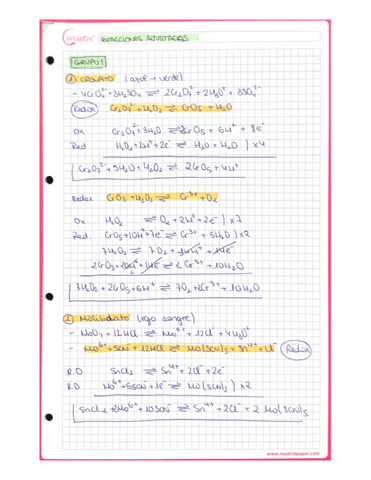 master REACCIONES AJUSTADAS
GRUPO I
1) CROMATO (azul → verde)
- 4CrO4²⁻ + 3H2SO4 ⇌ 2Cr2O7²⁻ + 2H2O + 3SO4²⁻
Redox Cr2O7²⁻ + H2O2 ⇌ CrO5 + H2O
Ox Cr2O7²⁻ + 3H2O ⇌ 2CrO5 + 6H⁺ + 8e⁻
Red H2O2 + 2H⁺ + 2e⁻ ⇌ H2O + H2O | x4
Cr2O7²⁻ + 5H2O + 4H2O2 ⇌ 2CrO5 + 4H⁺
Redox CrO5 + H2O2 ⇌ Cr³⁺ + O2
Ox. H2O2 ⇌ O2 + 2H⁺ + 2e⁻ | x7
Red. CrO5 + 10H⁺ + 7e⁻ ⇌ Cr³⁺ + 5H2O | x2
7H2O2 ⇌ 7O2 + 14H⁺ + 14e⁻
2CrO5 + 20H⁺ + 14e⁻ ⇌ 2Cr³⁺ + 10H2O
7H2O2 + 2CrO5 + 6H⁺ ⇌ 7O2 + 2Cr³⁺ + 10H2O
2) Molibdato (rojo sangre)
- MoO3 + 12HCl ⇌ Mo⁶⁺ + 12Cl⁻ + 4H2O
- Mo⁶⁺ + SCN⁻ + 12HCl ⇌ Mo(SCN)5 + Sn⁴⁺ + Cl⁻ Redox
R.O SnCl2 ⇌ Sn⁴⁺ + 2Cl⁻ + 2e⁻
R.D Mo⁶⁺ + 5SCN⁻ + 1e⁻ ⇌ Mo(SCN)5 | x2
SnCl2 + 2Mo⁶⁺ + 10SCN⁻ ⇌ Sn⁴⁺ + 2Cl⁻ + 2 Mo(SCN)5
www.madridpapel.com